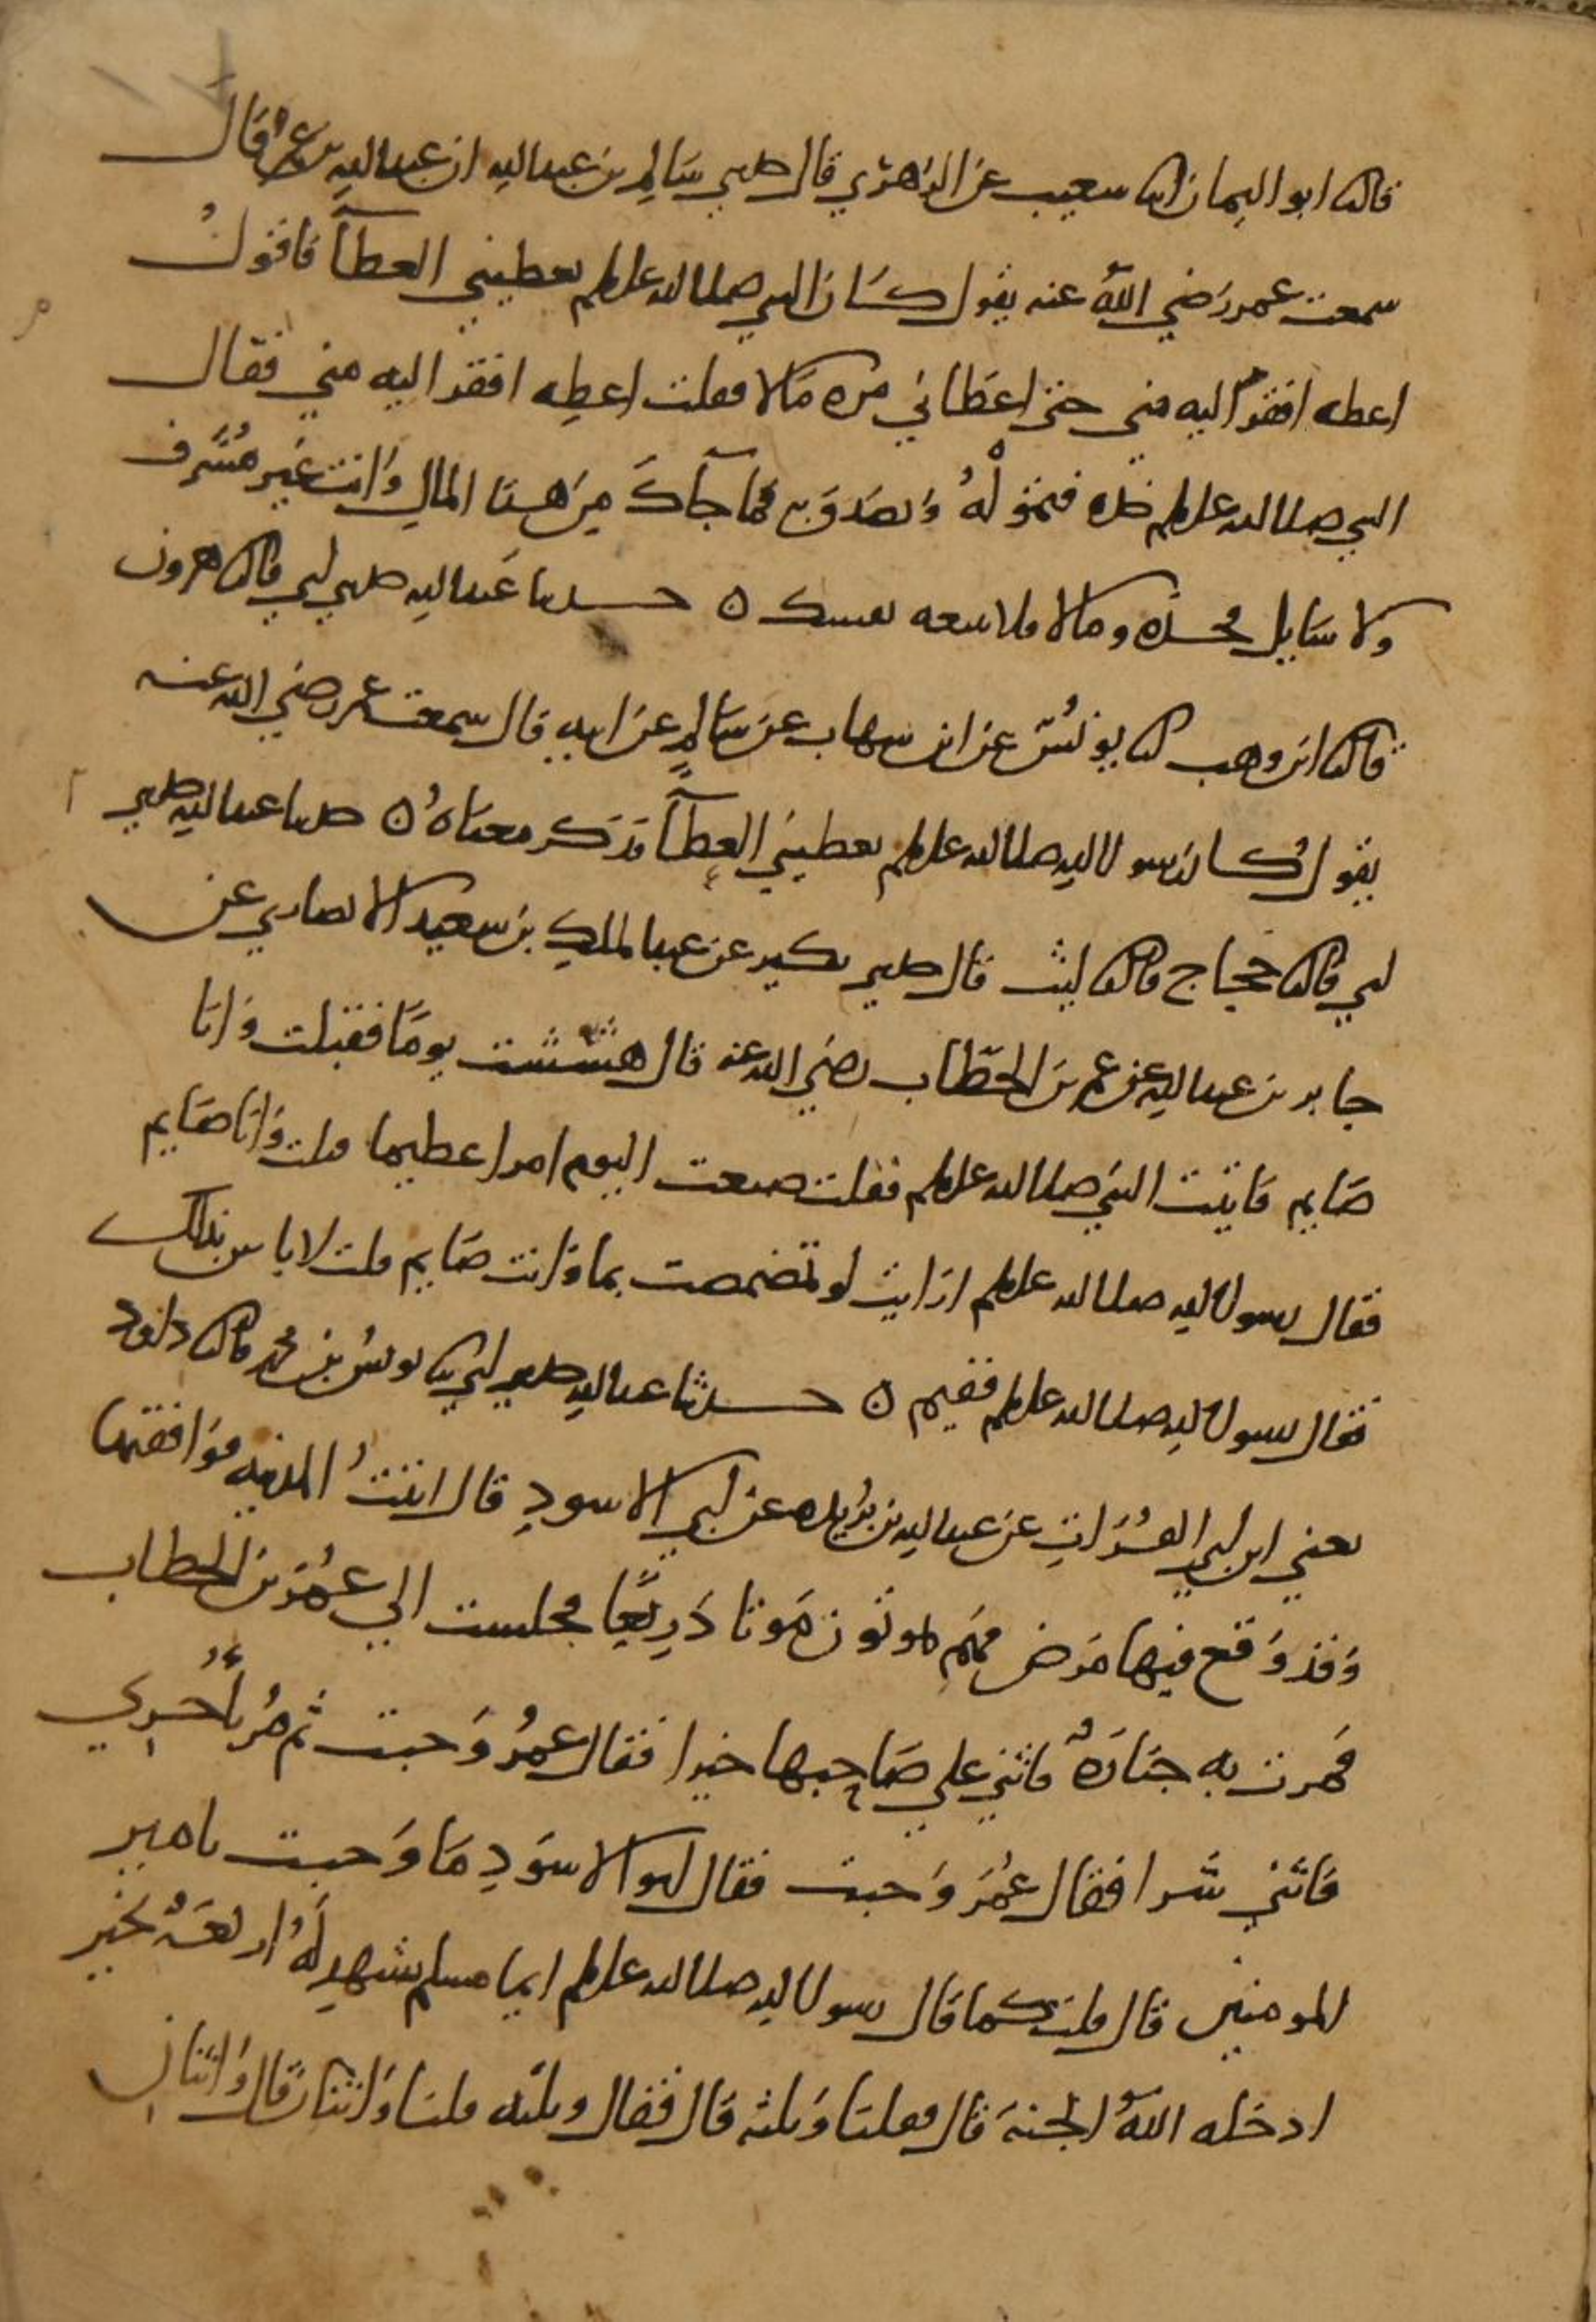 قالثنا ابو اليمان انا شعيب عن الزهري قال حدثني سالم بن عبد الله ان عبد الله بن عمر قال
سمعت عمر رضي الله عنه يقول كان النبي صلى الله عليه وسلم يعطيني العطآ فاقول
اعطه افقر اليه مني حتى اعطاني مرة مالا فقلت اعطه افقر اليه مني فقال
النبي صلى الله عليه وسلم خذه فتموله وتصدق به فما جآك من هذا المال وانت غير مشرف
ولا سايل فخذه ومالا فلا تتبعه نفسك ه حدثنا عبد الله حدثني ابي قالثنا هرون
قالثنا ابن وهب ثنا يونس عن ابن شهاب عن سالم عن ابيه قال سمعت عمر رضي الله عنه
يقول كان رسول الله صلى الله عليه وسلم يعطيني العطآ فذكر معناه ه حدثنا عبد الله حدثني
ابي قالثنا حجاج قالثنا ليث قال حدثني بكير عن عبد الملك بن سعيد الانصاري عن
جابر بن عبد الله عن عمر بن الخطاب رضي الله عنه قال هششت يوما فقبلت وانا
صايم فاتيت النبي صلى الله عليه وسلم فقلت صنعت اليوم امرا عظيما قبلت وانا صايم
فقال رسول الله صلى الله عليه وسلم ارايت لو تمضمضت بما وانت صايم قلت لا باس بذلك
فقال رسول الله صلى الله عليه وسلم ففيم ه حدثنا عبد الله حدثني ابي ثنا يونس بن محمد قالثنا داود
يعني ابن ابي الفرات عن عبد الله بن بريدة عن ابي الاسود قال اتيت المدينة فوافقتها
وقد وقع فيها مرض فهم يموتون موتا ذريعا فجلست الي عمر بن الخطاب
فمرت به جنازة فاثني علي صاحبها خيرا فقال عمر وجبت ثم مر باخري
فاثني شرا فقال عمر وجبت فقال ابو الاسود ما وجبت يا امير
المومنين قال قلت كما قال رسول الله صلى الله عليه وسلم ايما مسلم شهد له اربعة بخير
ادخله الله الجنة قال فقلنا وثلثة قال فقال وثلثه قلنا واثنان قال واثنان